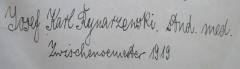 Josef Karl Rynarzewski. stud. med.
Zwischensemester 1919